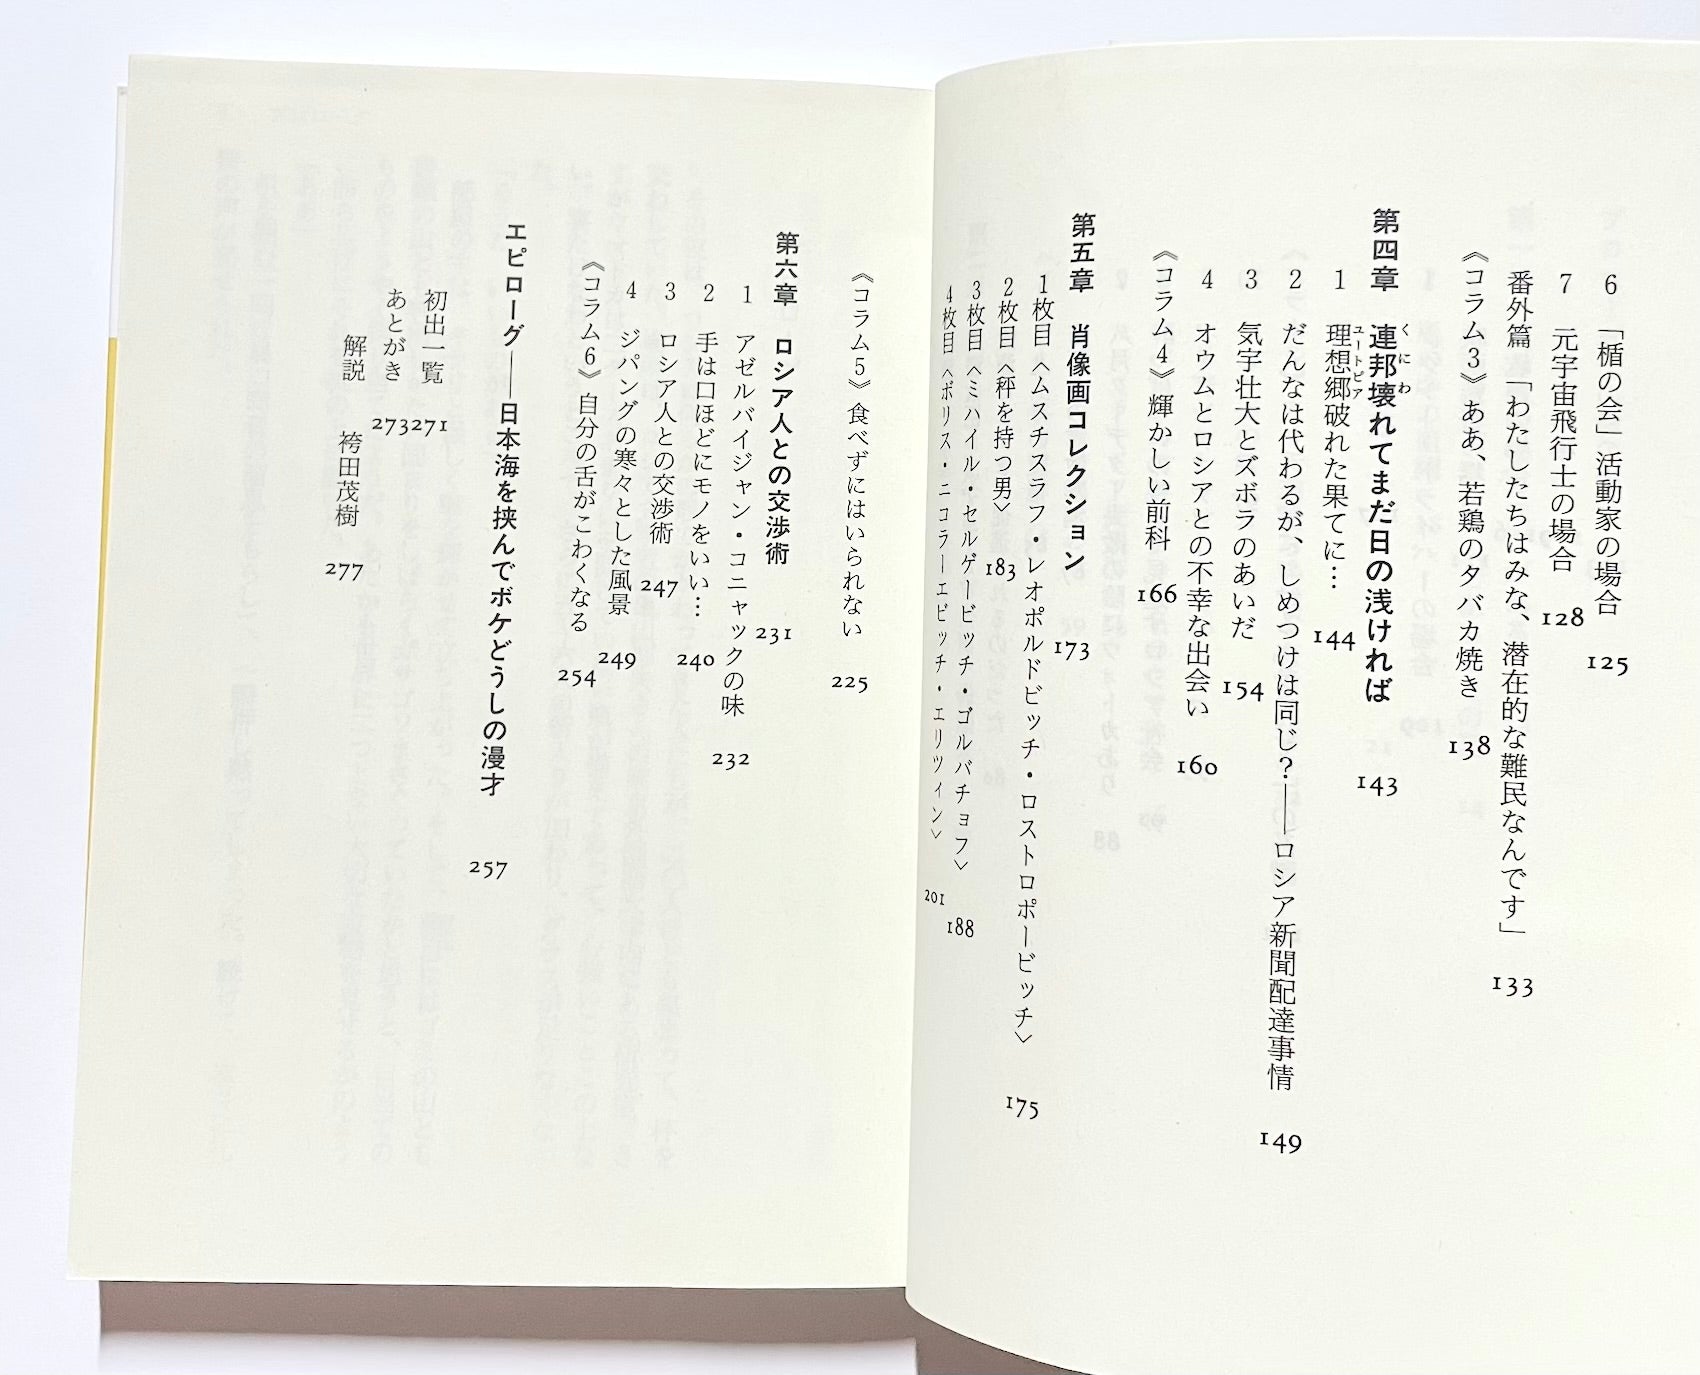 6 「楯の会」活動家の場合 125
7 元宇宙飛行士の場合 128
番外篇 「わたしたちはみな、潜在的な難民なんです」 133
《コラム3》ああ、若鶏のタバカ焼き 138
第四章 連邦壊れてまだ日の浅ければ 143
くにわ
1 理想郷破れた果てに… 144
ユートピア
2 だんなは代わるが、しめつけは同じ?――ロシア新聞配達事情 149
3 気宇壮大とズボラのあいだ 154
4 オウムとロシアとの不幸な出会い 160
《コラム4》輝かしい前科 166
第五章 肖像画コレクション 173
1枚目〈ムスチスラフ・レオポルドビッチ・ロストロポービッチ〉 175
2枚目〈秤を持つ男〉 183
3枚目〈ミハイル・セルゲービッチ・ゴルバチョフ〉 188
4枚目〈ボリス・ニコラーエビッチ・エリツィン〉 201
《コラム5》食べずにはいられない 225
第六章 ロシア人との交渉術 231
1 アゼルバイジャン・コニャックの味 232
2 手は口ほどにモノをいい… 240
3 ロシア人との交渉術 247
4 ジパングの寒々とした風景 249
《コラム6》自分の舌がこわくなる 254
エピローグ――日本海を挟んでボケどうしの漫才 257
初出一覧 271
あとがき 273
解説 袴田茂樹 277